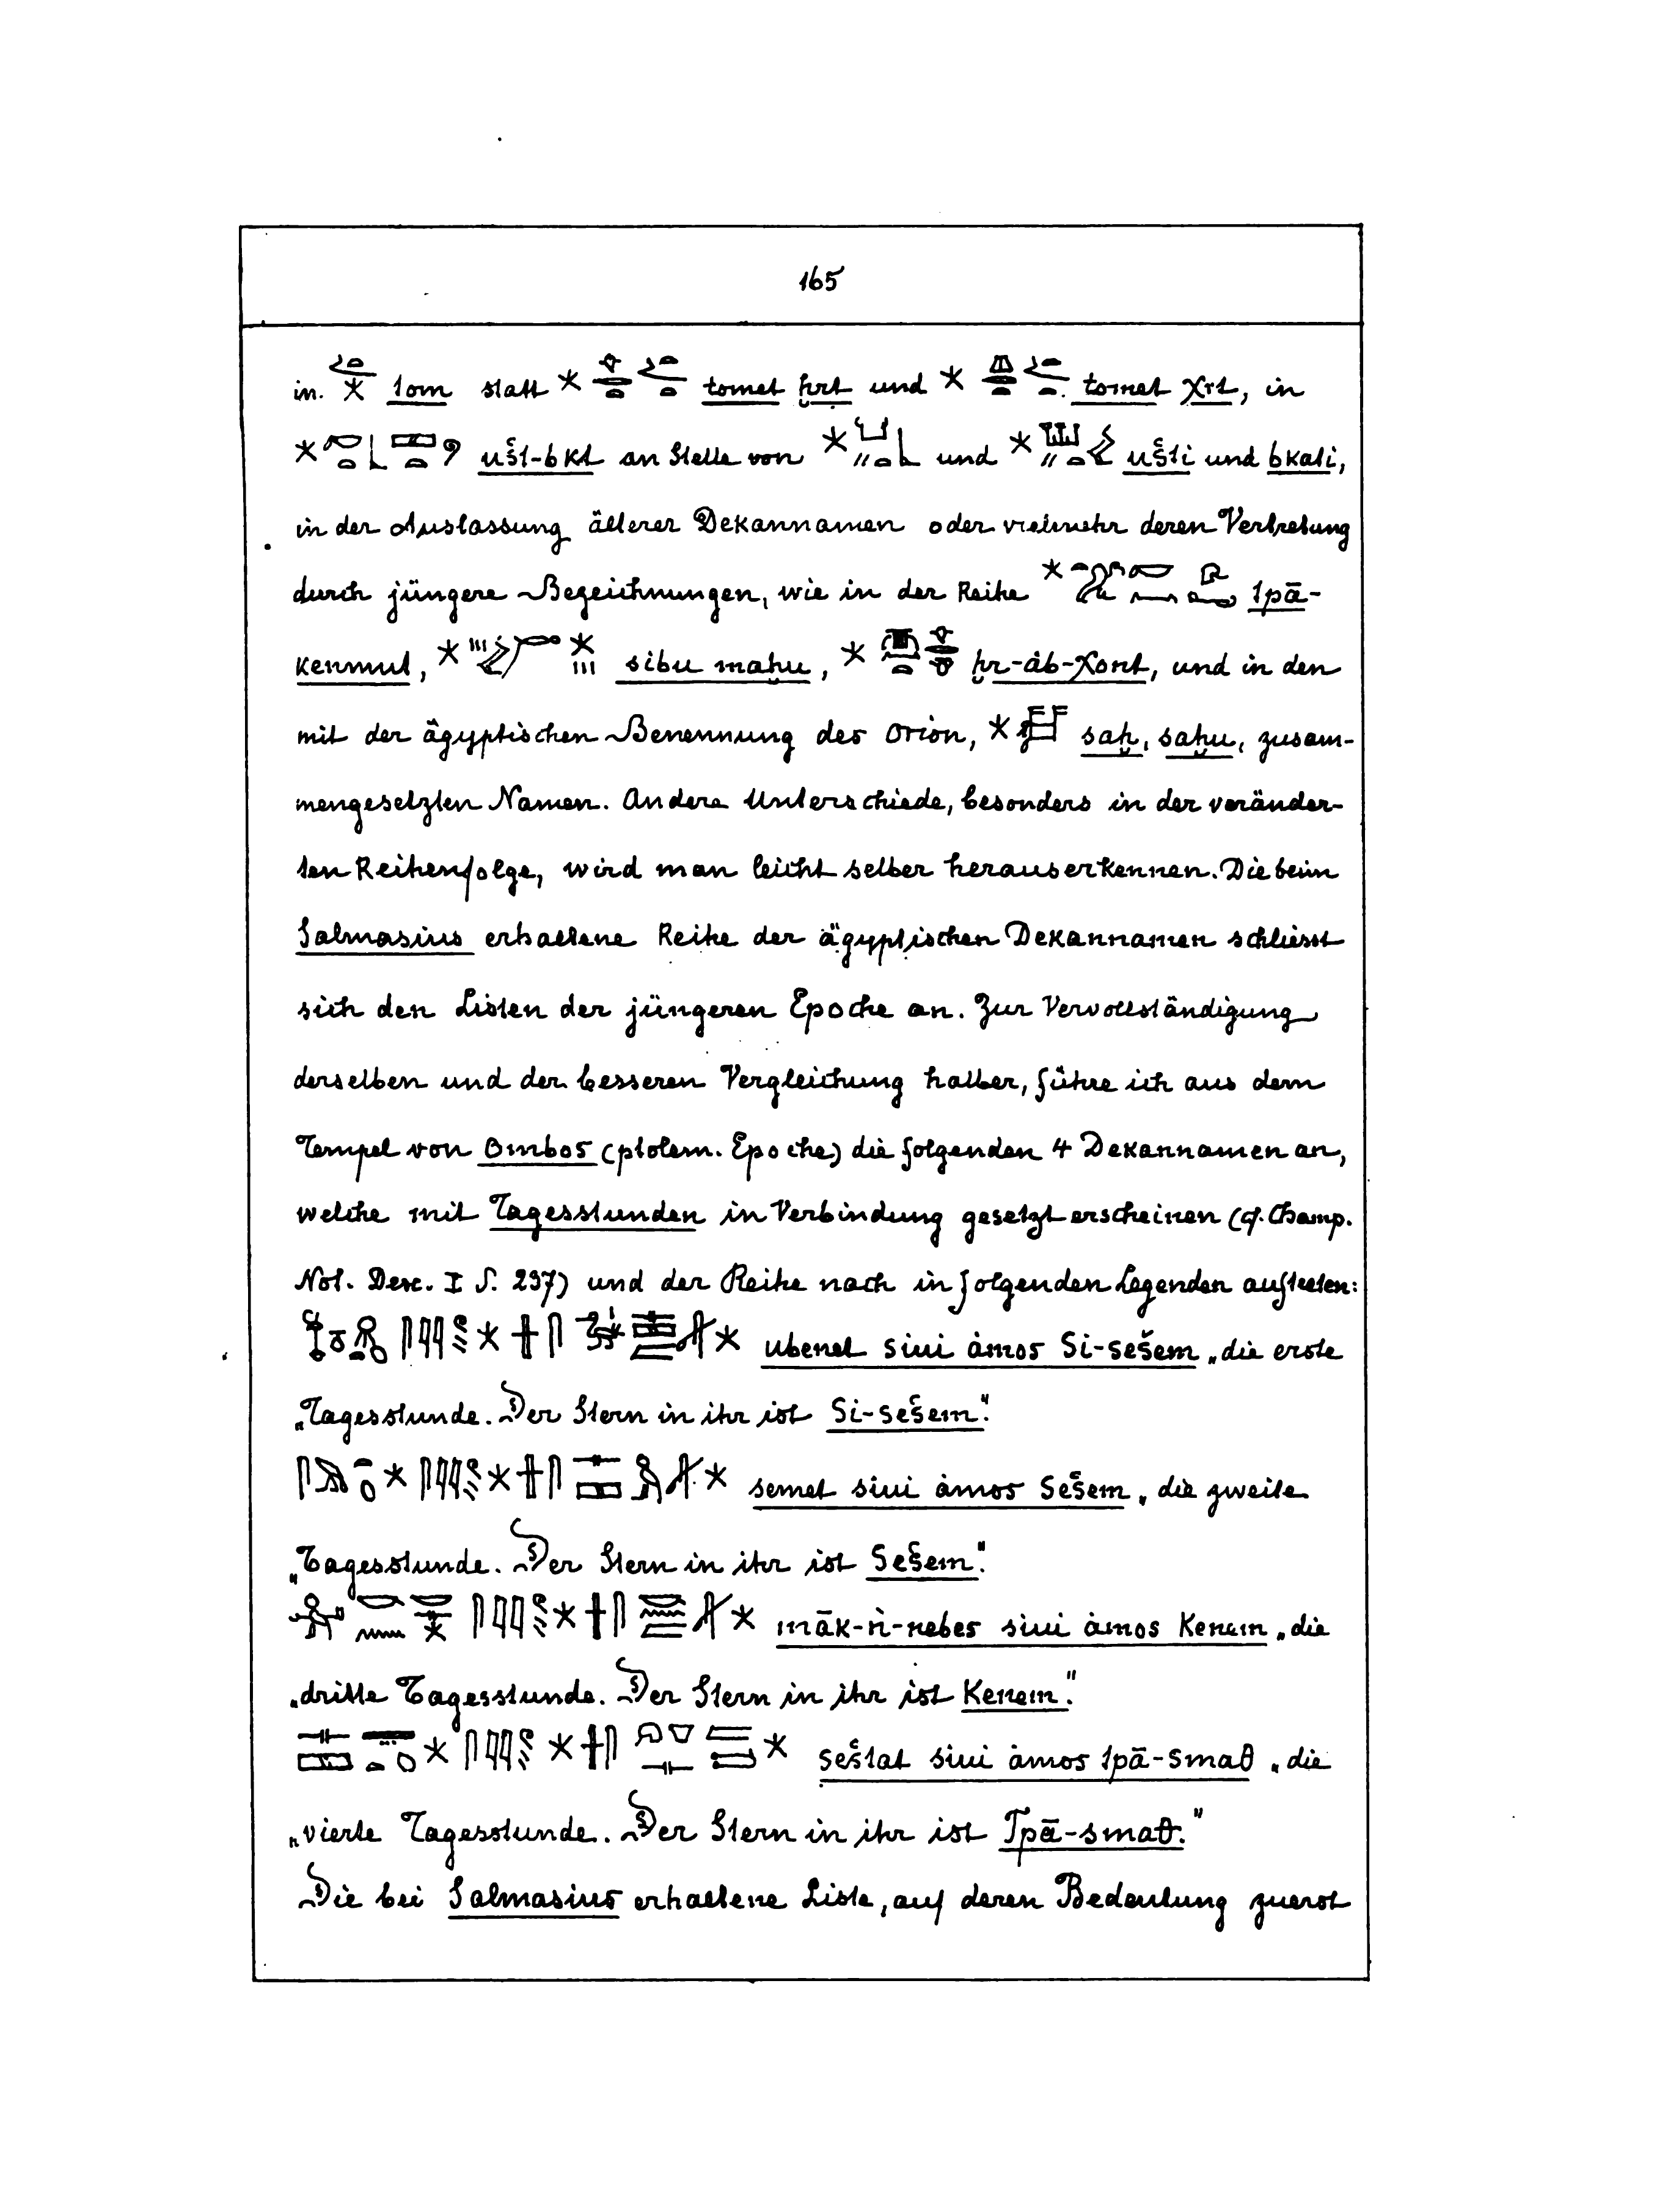 165
in tom statt tomet ḥrt und tomet χrt, in
ušt-bkt an Stelle von und ušti und bkati,
in der Auslassung älterer Dekannamen oder vielmehr deren Vertretung
durch jüngere Bezeichnungen, wie in der Reihe tpā-
kenmut, sibu maḥu, ḥr-àb-χont, und in den
mit der ägyptischen Benennung des Orion, saḥ, saḥu, zusam-
mengesetzten Namen. Andere Unterschiede, besonders in der veränder-
ten Reihenfolge, wird man leicht selber herauserkennen. Die beim
Salmasius erhaltene Reihe der ägyptischen Dekannamen schliesst
sich den Listen der jüngeren Epoche an. Zur Vervollständigung
derselben und der besseren Vergleichung halber, führe ich aus dem
Tempel von Ombos (ptolem. Epoche) die folgenden 4 Dekannamen an,
welche mit Tagesstunden in Verbindung gesetzt erscheinen (cf. Champ.
Not. Desc. I S. 237) und der Reihe nach in folgenden Legenden auftreten:
ubenet siui àmos Si-sešem „die erste
„Tagesstunde. Der Stern in ihr ist Si-sešem".
semet siui àmos Sešem „die zweite
„Tagesstunde. Der Stern in ihr ist Sešem".
māk-ǹ-nebes siui àmos Kenem „die
„dritte Tagesstunde. Der Stern in ihr ist Kenem."
seštat siui àmos tpā-smaθ „die
„vierte Tagesstunde. Der Stern in ihr ist Tpā-smaθ."
Die bei Salmasius erhaltene Liste, auf deren Bedeutung zuerst